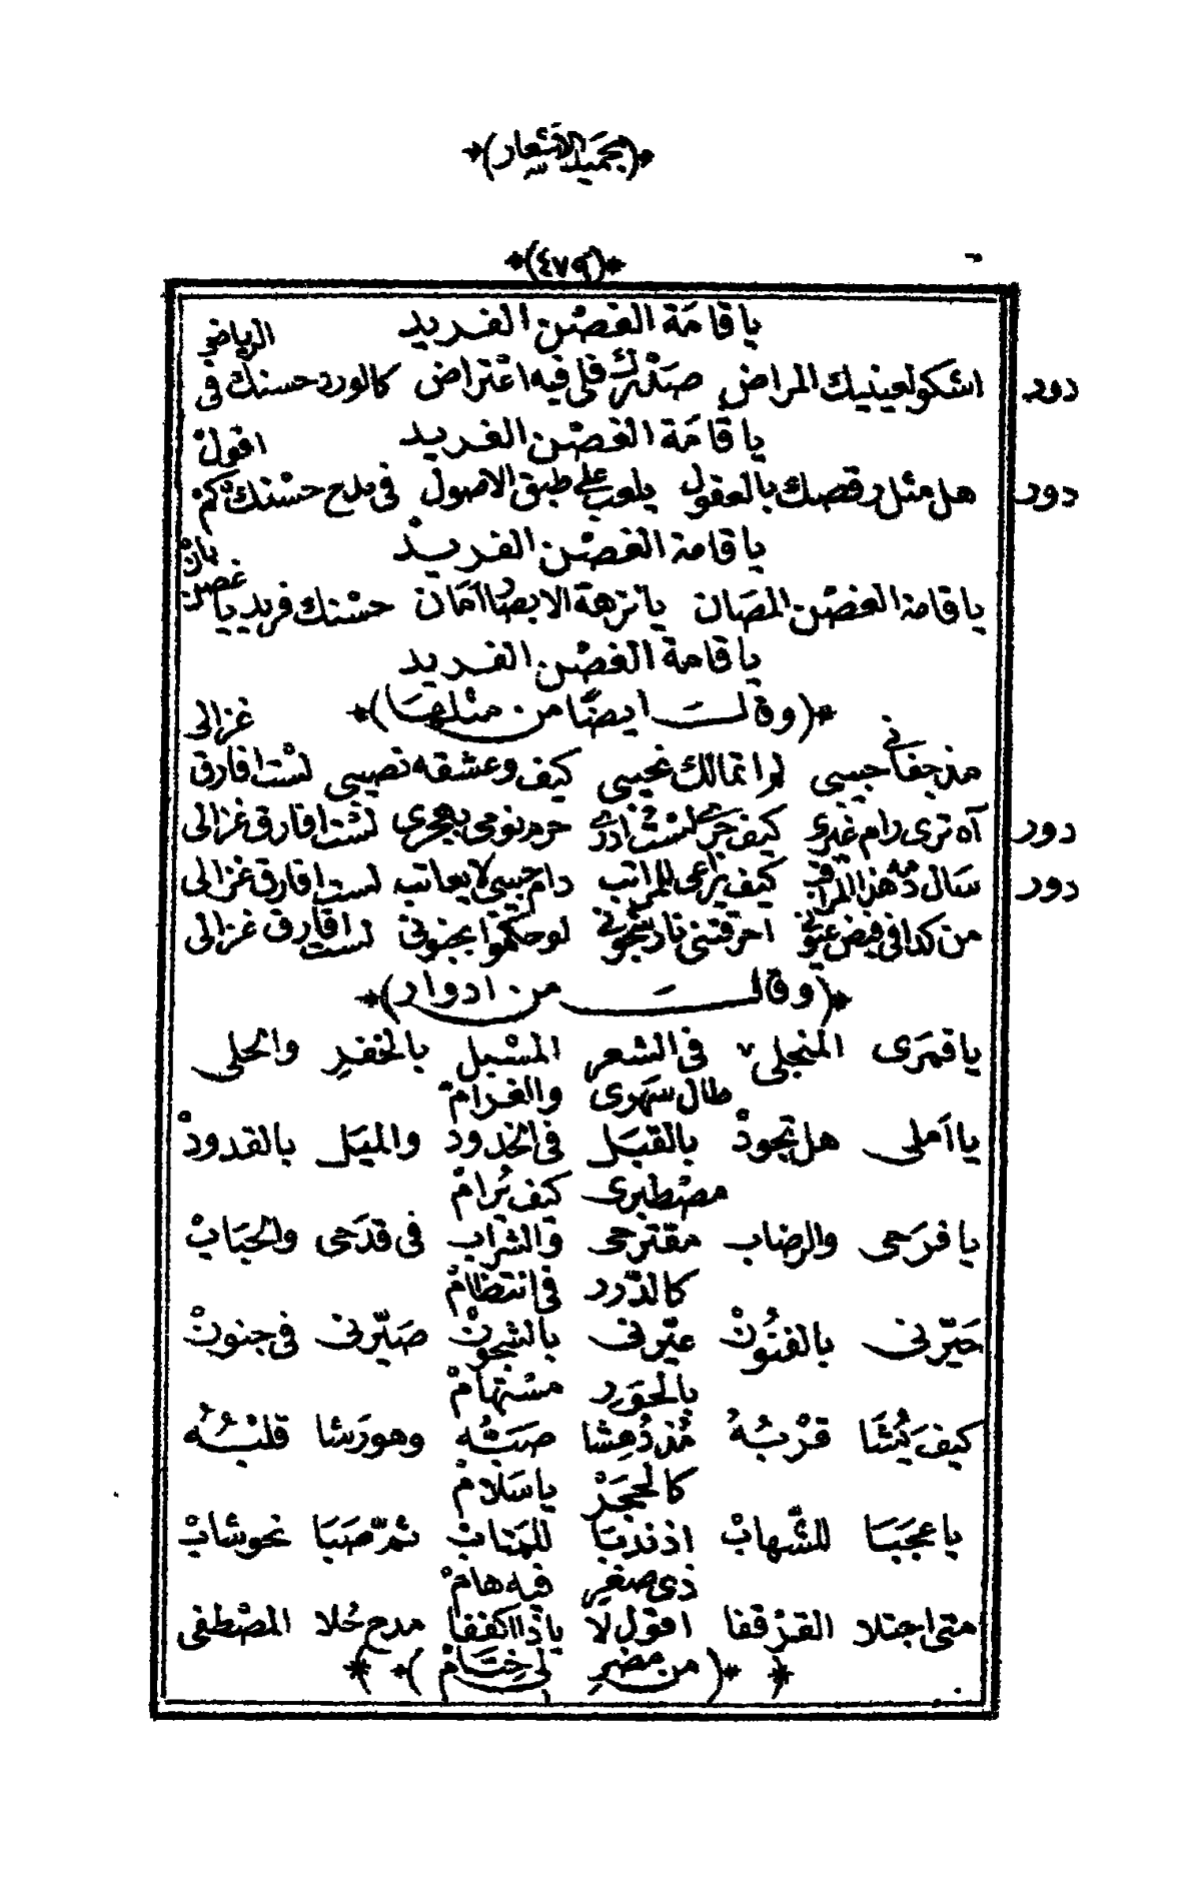 ﴿بجميل الاشعار﴾
﴿٤٧٩﴾
يا قامة الغصْن الفريد
دور اشكو لعينيك المراض صدّك فلى فيه اعتراض كالورد حسنك فى الرياض
يا قامَة الغصْن الفريد
دور هل مثل رقصك بالعقول يلعب على طبق الاصول فى بدع حسْنك كم اقولْ
يا قامة الغصْن الفريدْ
يا قامة الغصْن المصَان يا نزهة الابصار امَان حسْنك فريد يا غصن بانْ
يا قامة الغصْن الفريد
﴿وقالت ايضًا من مثلهَا﴾
مذ جفانى حبيبى لم اتمالك نحيبى كيف وعشقه نصيبى لسْت افارق غزالى
دور آه ترى رام غدرى كيف جرى لسْت ادرى حرم نومى بهجرى لسْت افارق غزالى
دور سَال دمه هذا المراقب كيف يراعى للمراتب دام حبيبى لا يعاتب لست افارق غزالى
من كدا فى فيض عيونى احرقتنى نار شجونى لو حكموا بجنونى لست افارق غزالى
﴿وقالت من ادوار﴾
يا قمَرى المنجلى فى الشعر المسْبل بالخفير والحلى
طال سهَرى والغرامْ
يا اَملى هل تجودْ بالقبَل فى الخدود والميَل بالقدودْ
مصْطبرى كيف يُرامْ
يا فرَحى والرضاب مقترحى والشراب فى قدَحى والحبَابْ
كالدّرر فى انتظامْ
حَيّرنى بالفتُونْ عيّرنى بالشجونْ صَيّرنى فى جنونْ
بالحوَر مسْتهامْ
كيف يُشَا قرْبُهُ مُذ دُهِشا صَبُّه وهو رَشا قلبُهُ
كالحجَرْ يا سَلامْ
يا عجبَا للشّهابْ اذ ندَبَا للمتَابْ ثمّ صَبَا نحو شابْ
ذى صغير فيه هامْ
متى اجتلا القرْقفا اقول لا يا ذا اكففا مدح حُلا المصْطفى
﴿من مضر لى خِتَامْ﴾